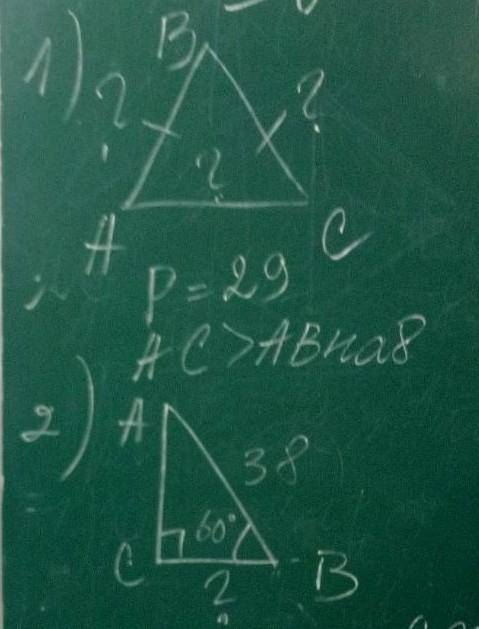 1)
B
? ?
?
A C
P = 29
AC > AB на 8
2)
A
38
60°
C B
?